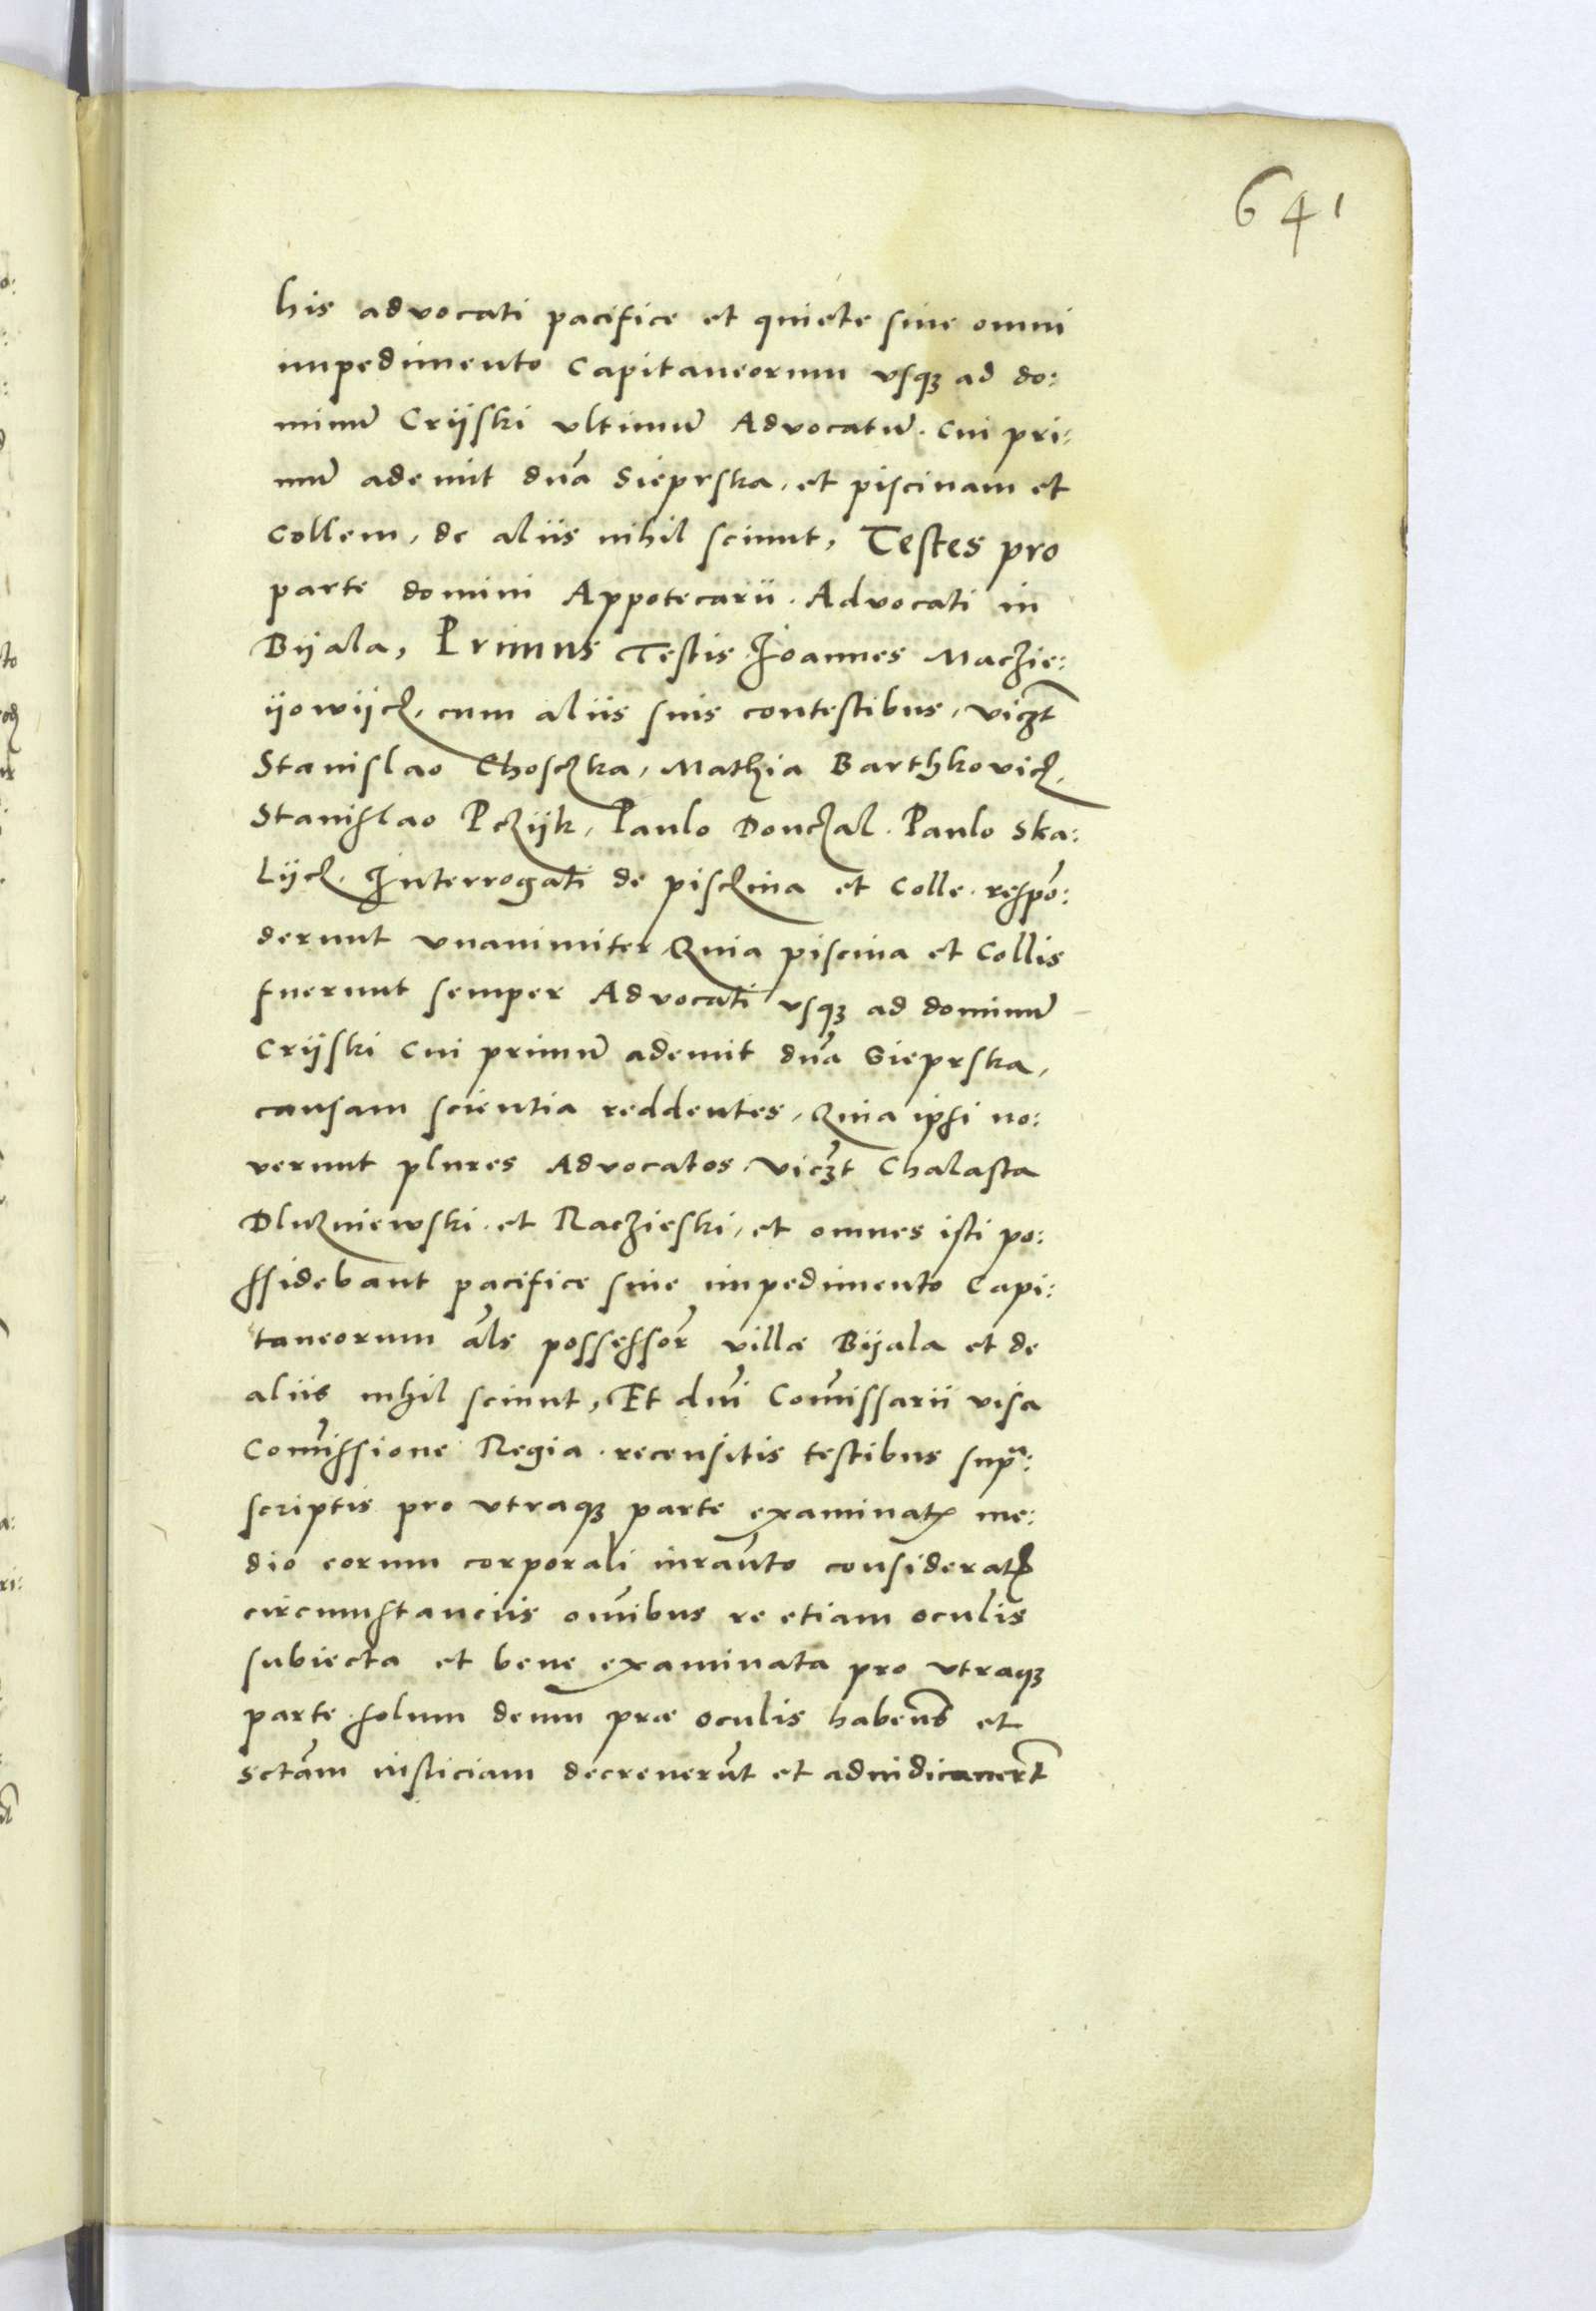 641
his advocati pacifice et quiete sine omni
impedimento Capitaneorum vsqȝ ad do:
minū Crijski vltimū Advocatū. cui pri:
mū ademit dnā Sieprska, et piscinam et
Collem, de aliis nihil sciunt, Testes pro
parte domini Appotecarii. Advocati in
Bijala, Primus Testis Joannes Maczie:
ijowijcz, cum aliis suis contestibus, viczt
Stanislao Choſczka, Mathia Barthkovicz,
Stanislao Pczijk, Paulo Donczal. Paulo Ska:
Lijcz. Interrogati de pisczina et Colle. respō:
derunt vnanimiter Quia piscina et Collis
fuerunt semper Advocati vsqȝ ad dominū
Crijski cui primū ademit dnā Sieprska,
causam scientia reddentes, Quia ipsi no:
verunt plures Advocatos, viczt Chalasta
Dluzniewski. et Raczieski, et omnes isti po:
ssidebant pacifice sine impedimento Capi:
taneorum āls possessor̄ villæ Bijala et de
aliis nihil sciunt, Et dnī Com̄issarii visa
Com̄issione Regia. recensitis testibus supᵃ:
scriptis pro vtraqȝ parte examinatꝭ me:
dio eorum corporali iuram̄to consideratꝭ
circumstanciis om̄ibus re etiam oculis
subiecta et bene examinata pro vtraqȝ
parte solum deum præ oculis haben̄s et
sctām iusticiam decreuerūt et adiudicauer̄t